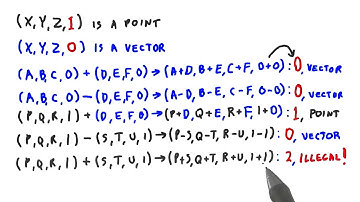 (X,Y,Z,1) IS A POINT
(X,Y,Z,0) IS A VECTOR
(A,B,C,0) + (D,E,F,0) → (A+D, B+E, C+F, 0+0): 0, VECTOR
(A,B,C,0) - (D,E,F,0) → (A-D, B-E, C-F, 0-0): 0, VECTOR
(P,Q,R,1) + (D,E,F,0) → (P+D, Q+E, R+F, 1+0): 1, POINT
(P,Q,R,1) - (S,T,U,1) → (P-S, Q-T, R-U, 1-1): 0, VECTOR
(P,Q,R,1) + (S,T,U,1) → (P+S, Q+T, R+U, 1+1): 2, ILLEGAL!